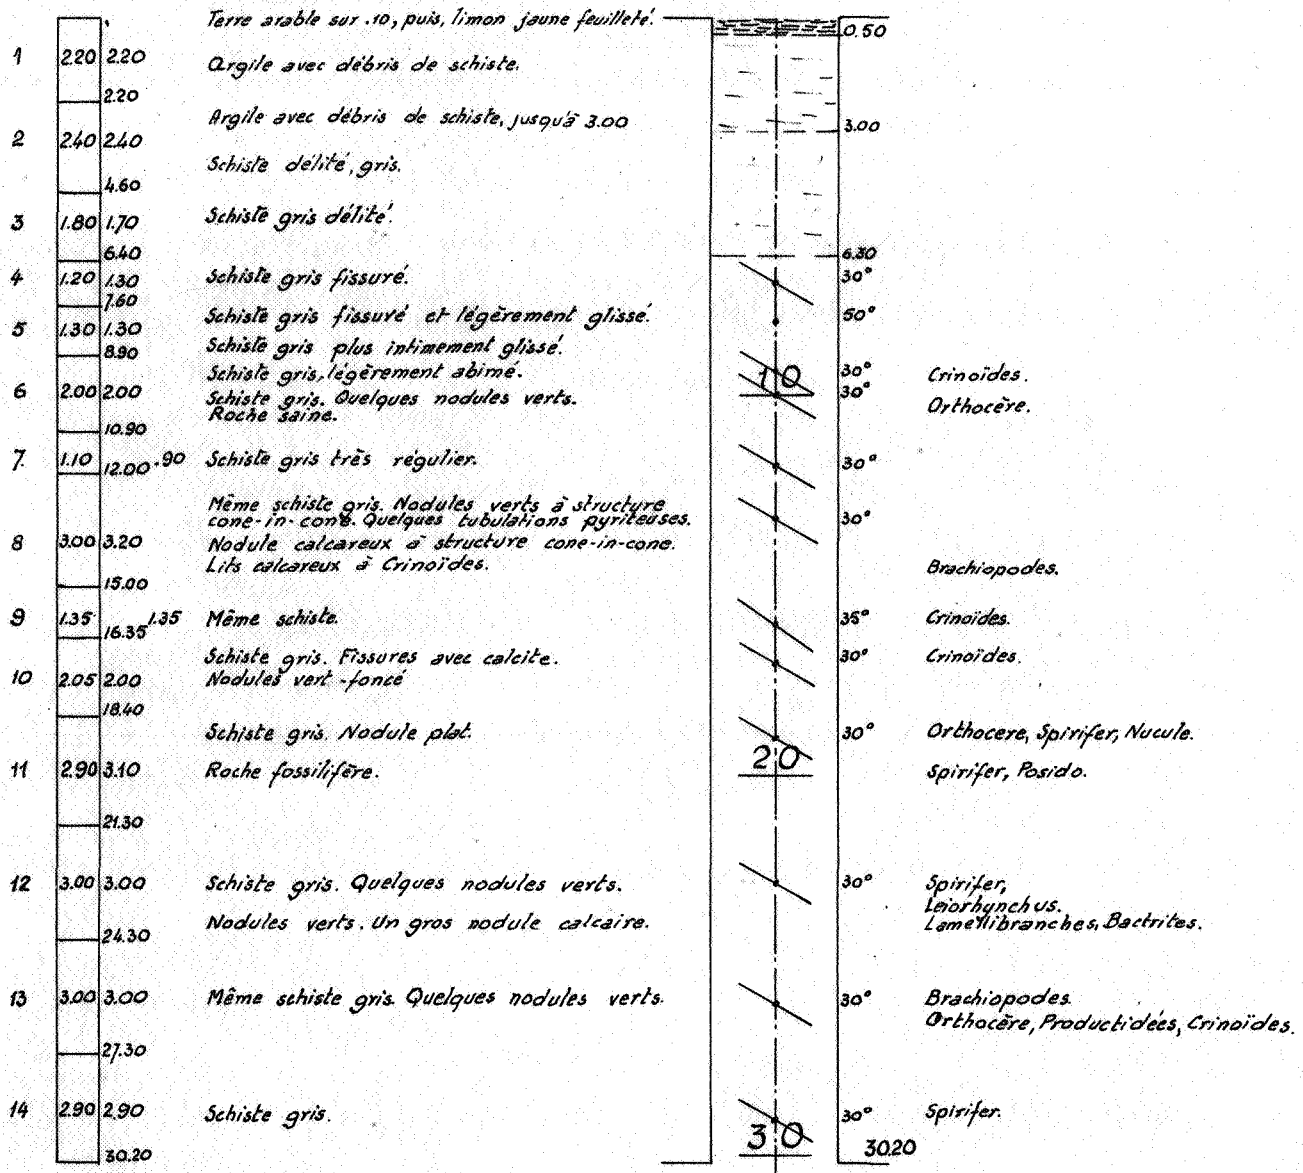 Terre arable sur .10, puis, limon jaune feuilleté.
0.50
1 2.20 2.20 Argile avec débris de schiste.
2.20
Argile avec débris de schiste, jusqu'à 3.00
3.00
2 2.40 2.40
Schiste délité, gris.
4.60
3 1.80 1.70 Schiste gris délité.
6.40 6.30
4 1.20 1.30 Schiste gris fissuré. 30°
7.60
Schiste gris fissuré et légèrement glissé. 50°
5 1.30 1.30
8.90 Schiste gris plus intimement glissé.
Schiste gris, légèrement abimé. 10 30° Crinoïdes.
6 2.00 2.00 Schiste gris. Quelques nodules verts. 30° Orthocère.
Roche saine.
10.90
7. 1.10 .90 Schiste gris très régulier. 30°
12.00
Même schiste gris. Nodules verts à structure
cone-in-cone. Quelques tubulations pyriteuses. 30°
8 3.00 3.20 Nodule calcareux à structure cone-in-cone.
Lits calcareux à Crinoïdes. Brachiopodes.
15.00
9 1.35 1.35 Même schiste. 35° Crinoïdes.
16.35
Schiste gris. Fissures avec calcite. 30° Crinoïdes.
10 2.05 2.00 Nodules vert-foncé
18.40
Schiste gris. Nodule plat. 30° Orthocere, Spirifer, Nucule.
20
11 2.90 3.10 Roche fossilifère. Spirifer, Posido.
21.30
12 3.00 3.00 Schiste gris. Quelques nodules verts. 30° Spirifer,
Leiorhynchus.
Nodules verts. Un gros nodule calcaire. Lamellibranches, Bactrites.
24.30
13 3.00 3.00 Même schiste gris. Quelques nodules verts. 30° Brachiopodes.
Orthocère, Productidées, Crinoïdes.
27.30
14 2.90 2.90 Schiste gris. 30° Spirifer.
30
30.20 30.20